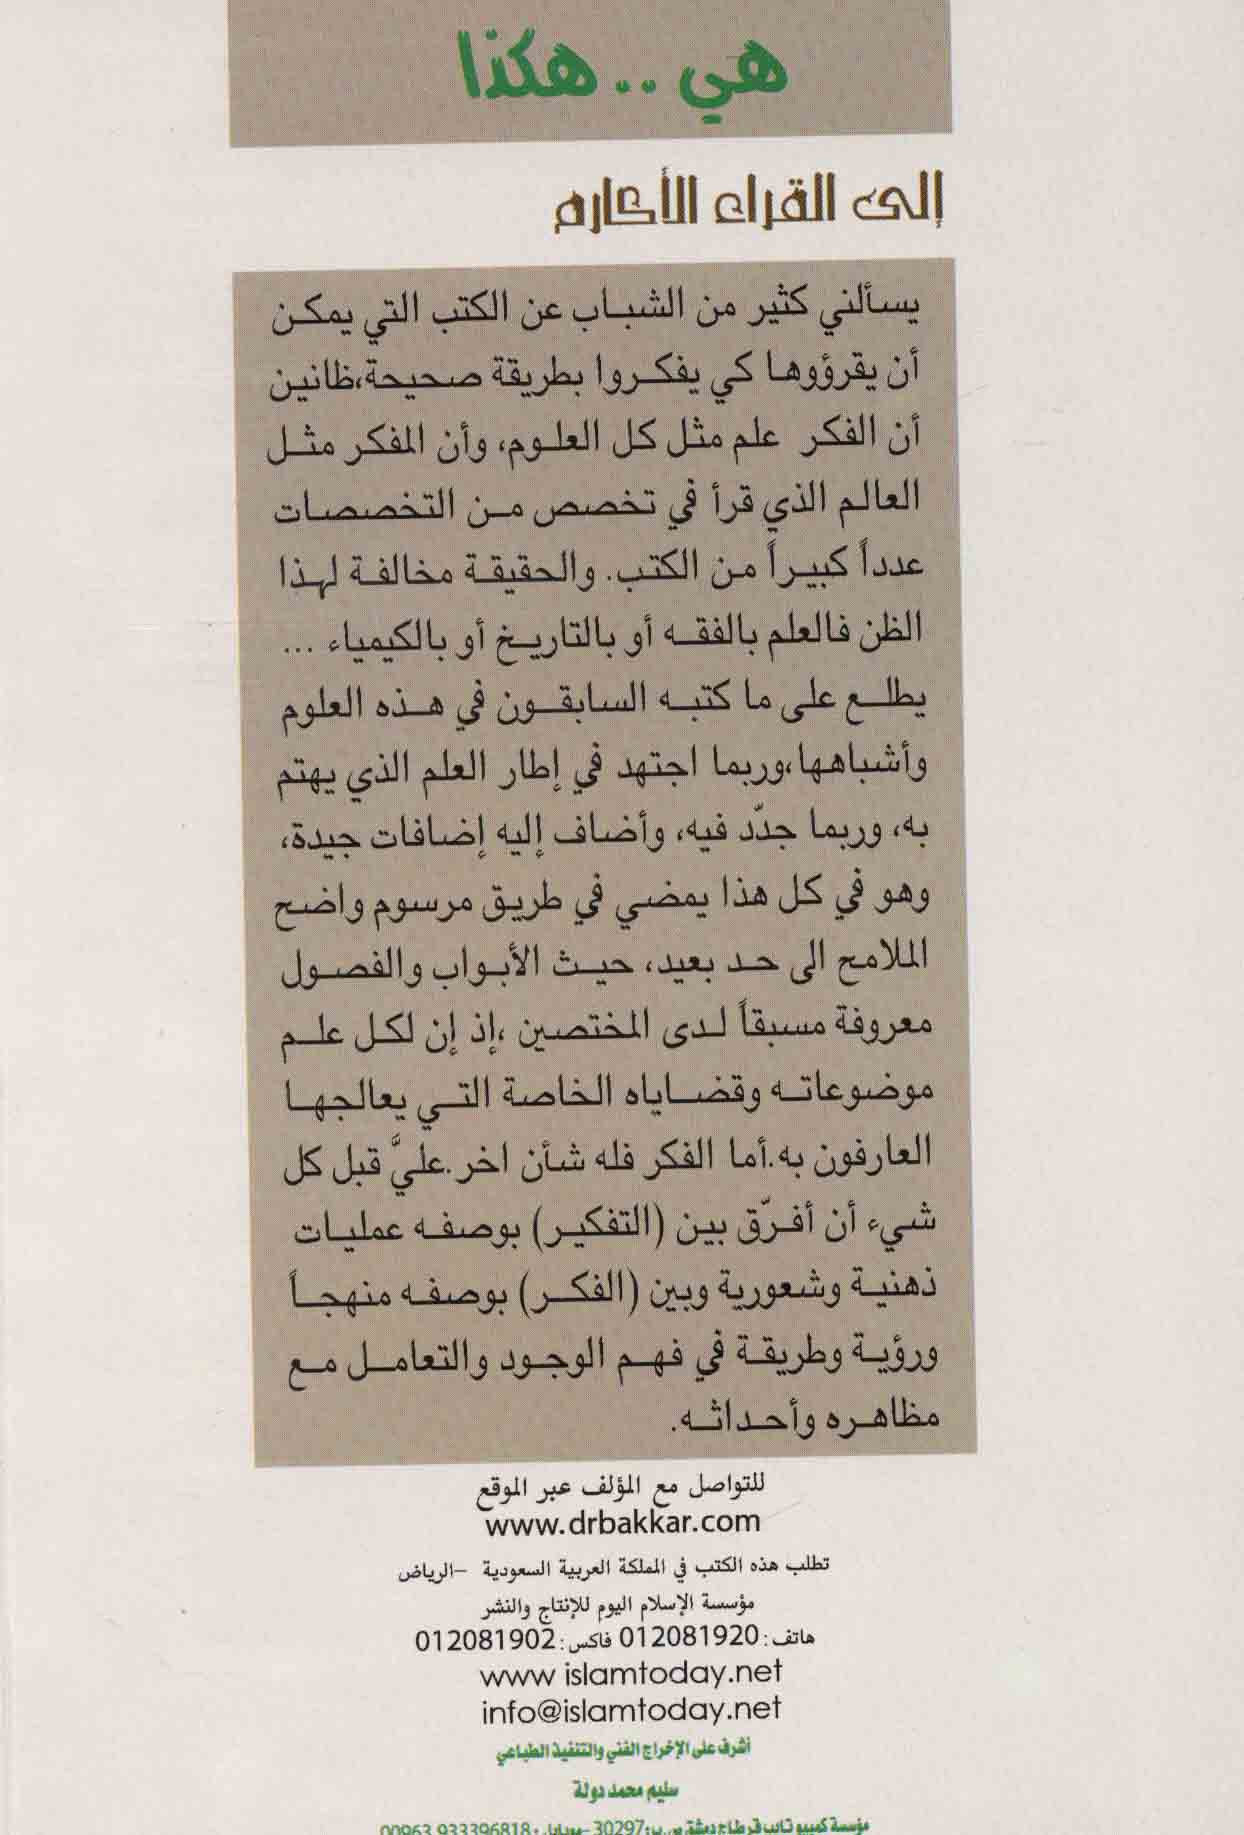 هي .. هكذا
إلى القراء الأكارم
يسألني كثير من الشباب عن الكتب التي يمكن
أن يقرؤوها كي يفكروا بطريقة صحيحة،ظانين
أن الفكر علم مثل كل العلوم، وأن المفكر مثل
العالم الذي قرأ في تخصص من التخصصات
عدداً كبيراً من الكتب. والحقيقة مخالفة لهذا
الظن فالعلم بالفقه أو بالتاريخ أو بالكيمياء ...
يطلع على ما كتبه السابقون في هذه العلوم
وأشباهها،وربما اجتهد في إطار العلم الذي يهتم
به، وربما جدّد فيه، وأضاف إليه إضافات جيدة،
وهو في كل هذا يمضي في طريق مرسوم واضح
الملامح الى حد بعيد، حيث الأبواب والفصول
معروفة مسبقاً لدى المختصين ،إذ إن لكل علم
موضوعاته وقضاياه الخاصة التي يعالجها
العارفون به.أما الفكر فله شأن اخر.عليَّ قبل كل
شيء أن أفرّق بين (التفكير) بوصفه عمليات
ذهنية وشعورية وبين (الفكر) بوصفه منهجاً
ورؤية وطريقة في فهم الوجود والتعامل مع
مظاهره وأحداثه.
للتواصل مع المؤلف عبر الموقع
www.drbakkar.com
تطلب هذه الكتب في المملكة العربية السعودية -الرياض
مؤسسة الإسلام اليوم للإنتاج والنشر
هاتف: 012081920 فاكس: 012081902
www islamtoday.net
info@islamtoday.net
أشرف على الإخراج الفني والتنفيذ الطباعي
سليم محمد دولة
مؤسسة كمبيوتايب قرطاج دمشق ص.ب: 30297 - موبايل: 00963 933396818